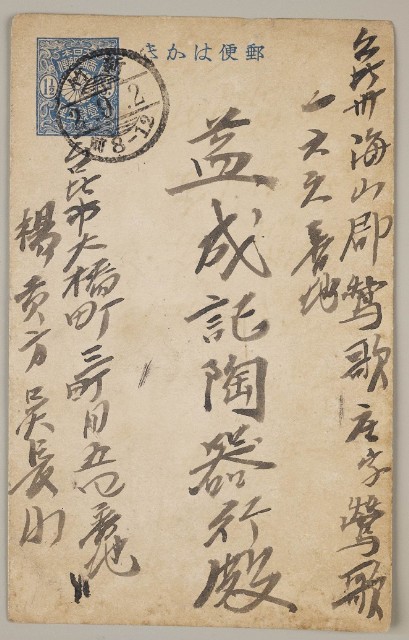 郵便はかき
台北州海山郡鶯歌庄字鶯歌
一六六番地
益成記陶器行殿
台北市大橋町三町目五四番地
楊貢方 吳長則
1½
9.2
前8-12